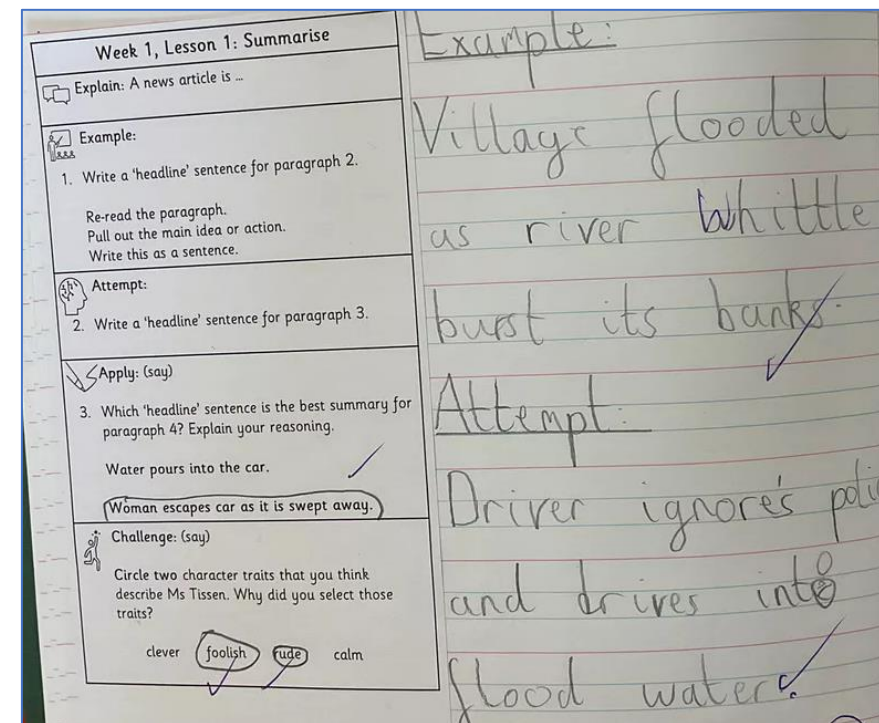 Week 1, Lesson 1: Summarise
Explain: A news article is ...
Example:
1. Write a 'headline' sentence for paragraph 2.
Re-read the paragraph.
Pull out the main idea or action.
Write this as a sentence.
Attempt:
2. Write a 'headline' sentence for paragraph 3.
Apply: (say)
3. Which 'headline' sentence is the best summary for
paragraph 4? Explain your reasoning.
Water pours into the car.
Woman escapes car as it is swept away.
Challenge: (say)
Circle two character traits that you think
describe Ms Tissen. Why did you select those
traits?
clever foolish rude calm
Example:
Village flooded
as river Whittle
burst its banks.
Attempt:
Driver ignore's
and drives into
flood water.